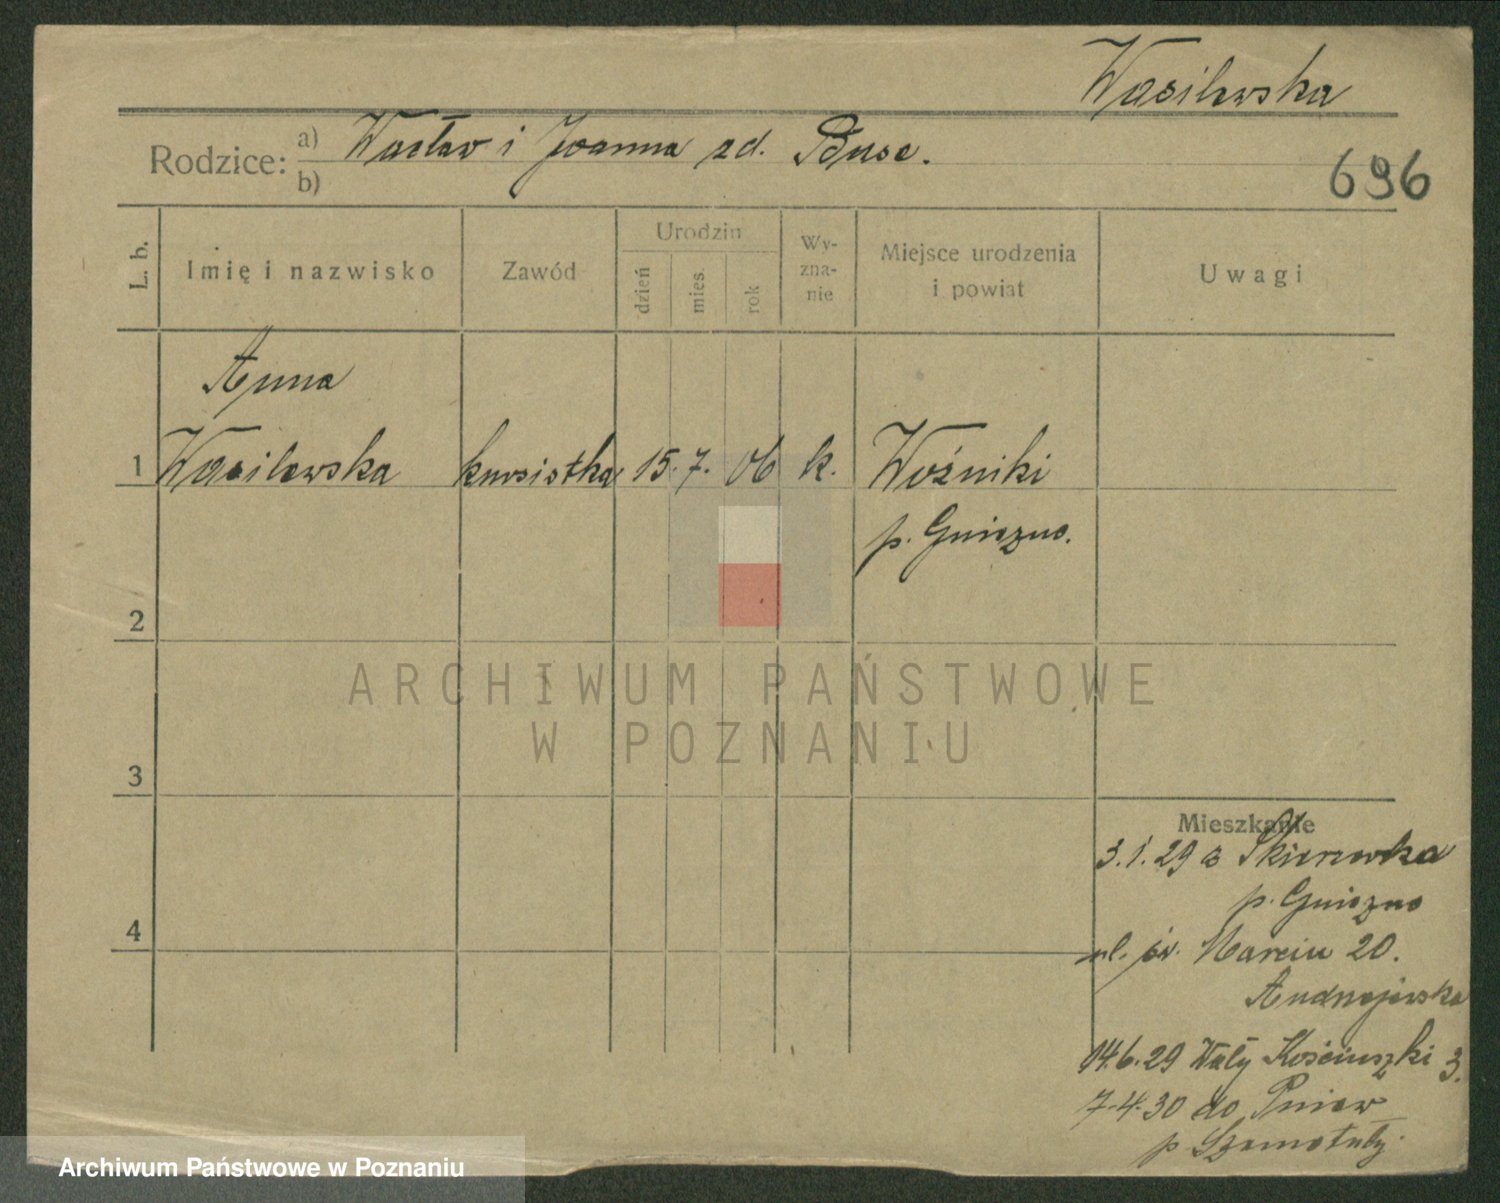 Wasilewska
Rodzice: a) Wacław i Joanna zd. Buse.
b)
696
L. b.
Imię i nazwisko
Zawód
Urodzin
dzień
mies.
rok
Wy-
zna-
nie
Miejsce urodzenia
i powiat
Uwagi
Anna
1 Wasilewska kursistka 15. 7. 06 k. Woźniki
p. Gniezno.
2
ARCHIWUM PAŃSTWOWE
W POZNANIU
3
Mieszkanie
3.1.29 z Skierewka
p. Gniezno
4
ul. św. Marcin 20.
Andrzejewska
14.6.29 Wały Kościuszki 3.
7.4.30 do Pniew
p Szamotuły.
Archiwum Państwowe w Poznaniu